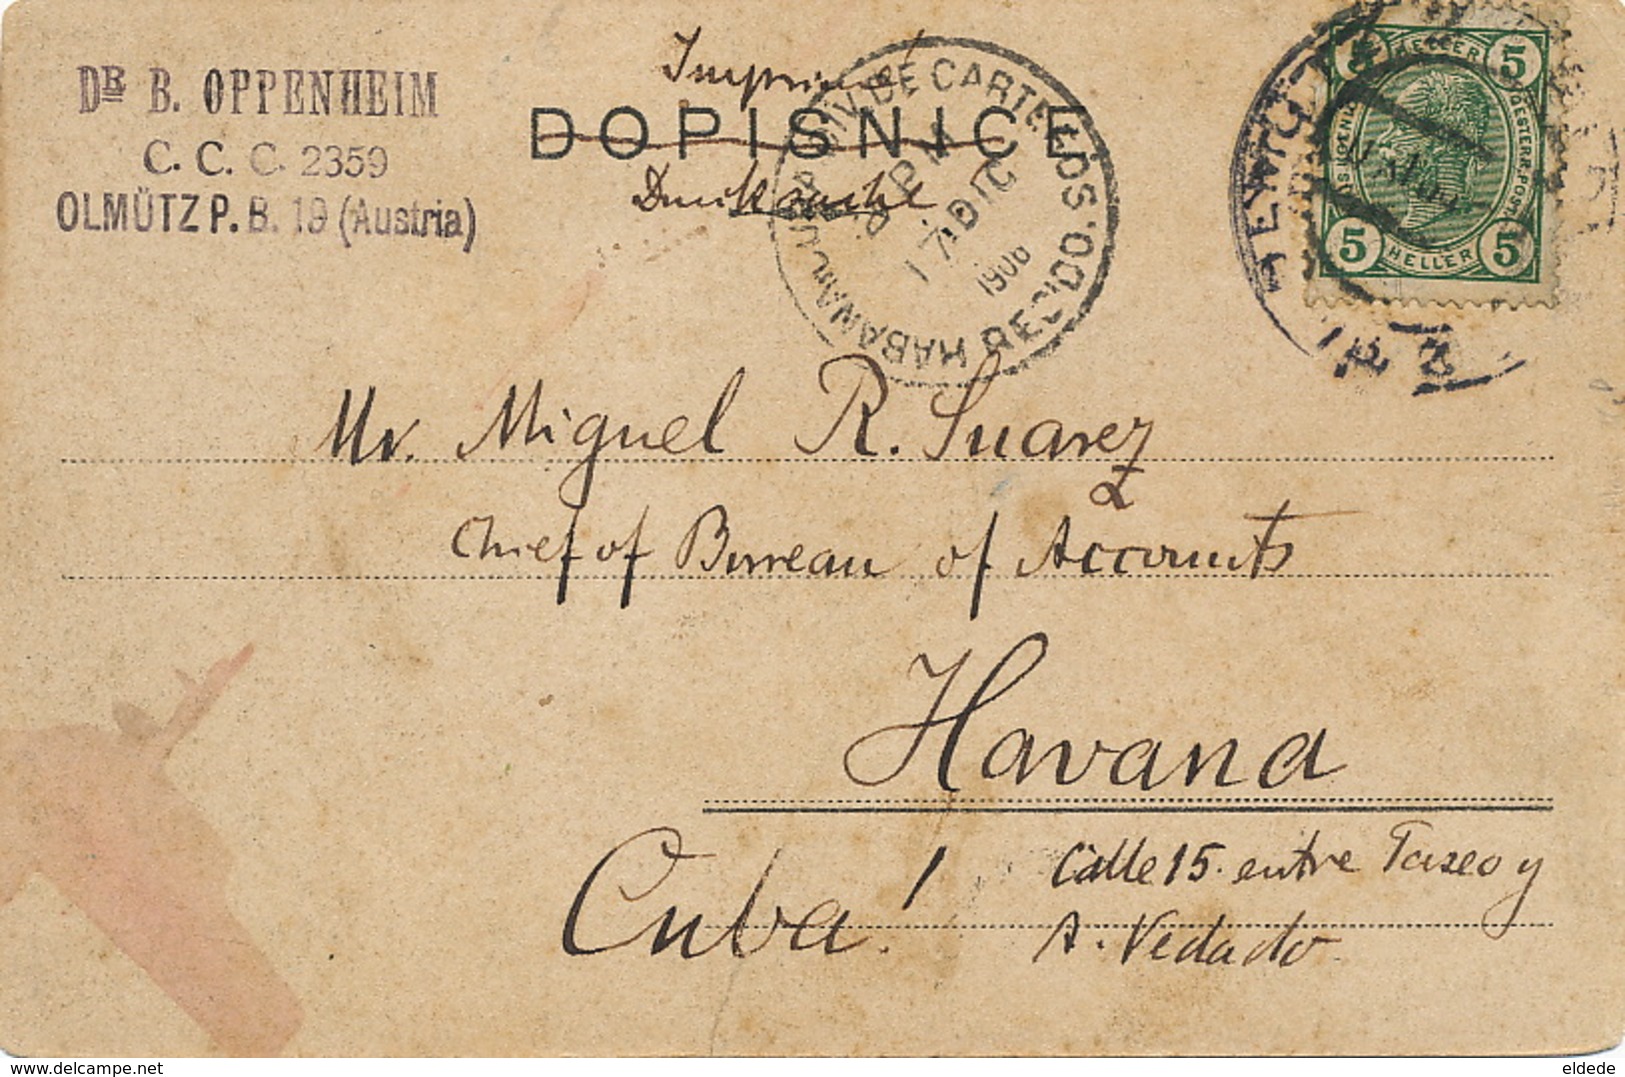 DR B. OPPENHEIM
C. C. C. 2359
OLMÜTZ P. B. 19 (Austria)
Imprimé
DOPISNICE
Drucksache
DE CARTEROS
HABANA
DIC
1906
5 HELLER 5
5 HELLER 5
Mr. Miguel R. Suarez
Chief of Bureau of Accounts
Havana
Cuba!
Calle 15. entre Paseo y
A. Vedado
www.delcampe.net
eldede